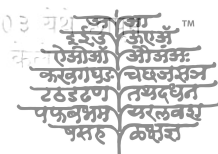 ०३ येथे
अ आ ™
इईउ ऊएॲ
ऐओऑ औअंअः
कखगघङ चछजझञ
टठडढण तथदधन
पफबभम यरलवश
षसह ळक्षज्ञ